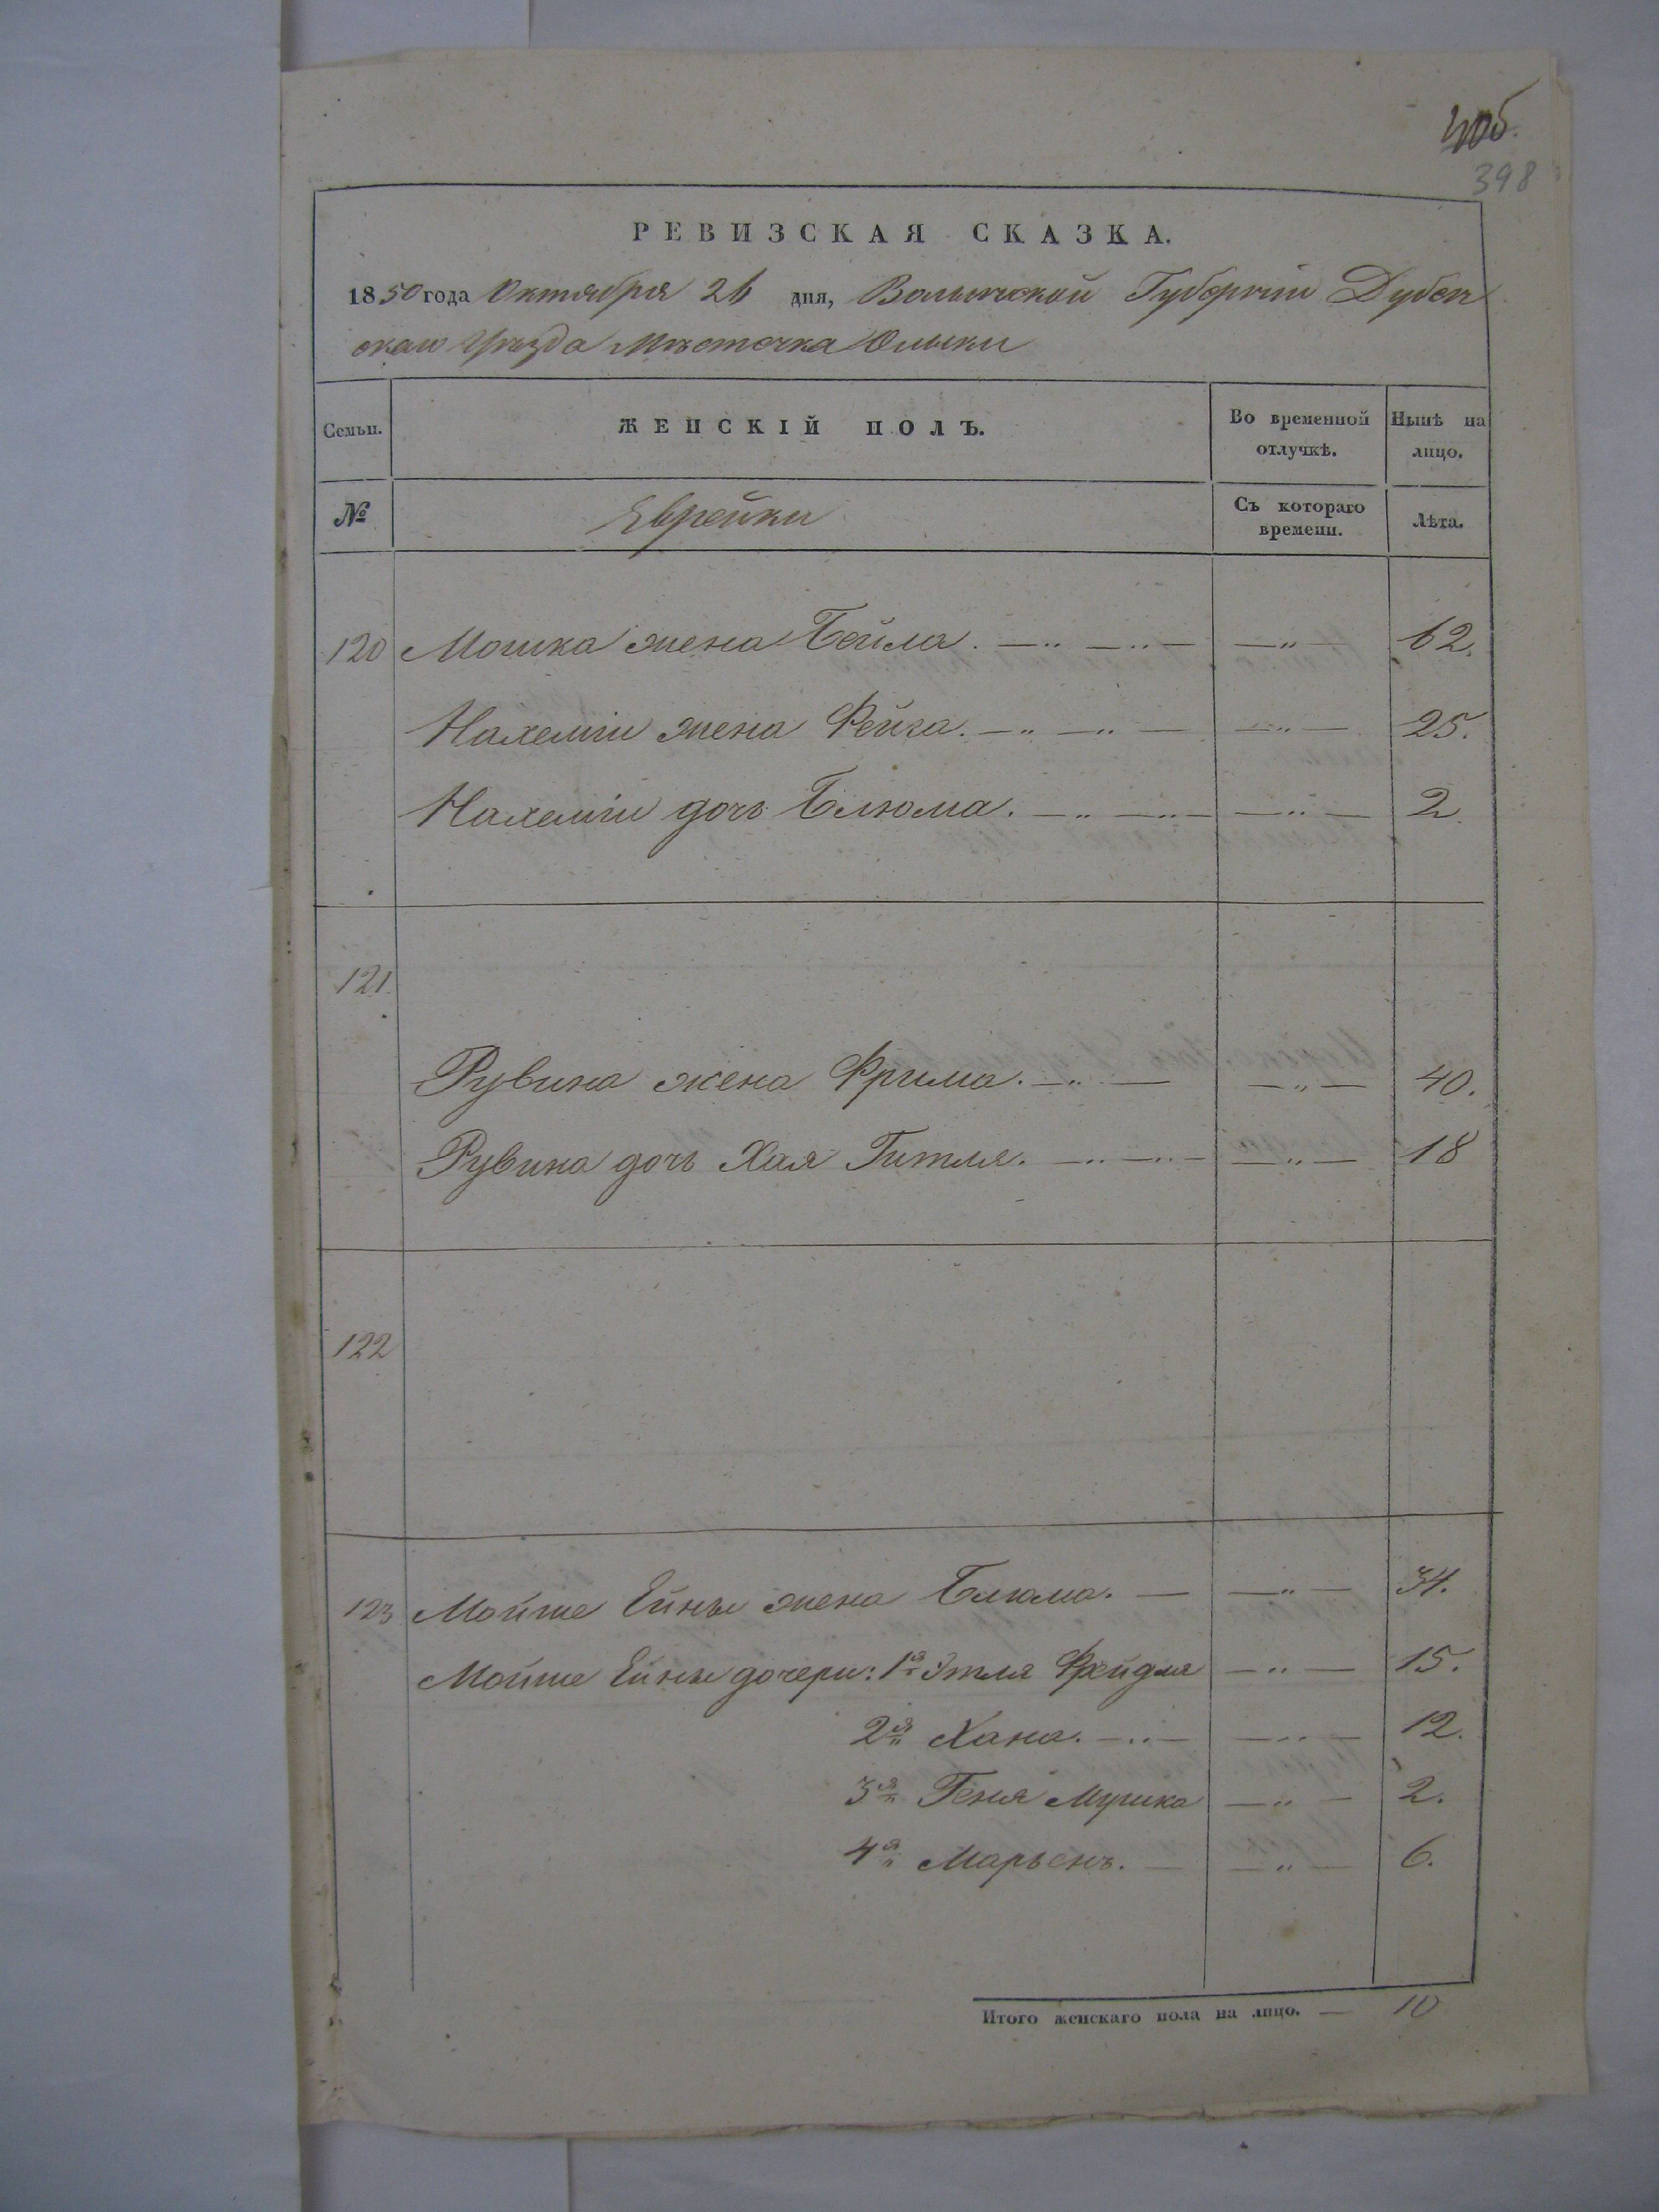 398
РЕВИЗСКАЯ СКАЗКА.
1850 года Октября 26 дня, Волынской Губернiи Дубен
скаго Уѣзда Мѣстечка Олыки
Семьи. ЖЕНСКІЙ ПОЛЪ. Во временной отлучкѣ. Нынѣ на лицо.
№ Еврейки Съ котораго времени. Лѣта.
120 Мошка жена Бейла. — „ — „ — — „ — 62.
Нахемiи жена Фейга. — „ — „ — — „ — 25.
Нахемiи дочь Блюма. — „ — „ — — „ — 2.
121
Рувина жена Фрима. — „ — — „ — 40.
Рувина дочь Хая Гитля. — „ — „ — — „ — 18
122
123 Мойше Ейны жена Блюма. — — „ — 34.
Мойше Ейны дочери: 1я Этля Фрейдля — „ — 15.
2я Хана. — „ — — „ — 12.
3я Геня — „ — 2.
4я Марьенъ. — — „ — 6.
Итого женскаго пола на лицо. — 10